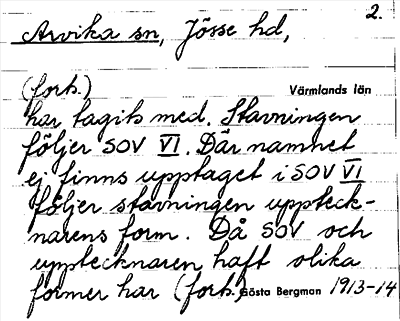 2.
Arvika sn, Jösse hd,
(forts.) Värmlands län
har tagits med. Stavningen
följer SOV VI. Där namnet
ej finns upptaget i SOV VI
följer stavningen uppteck-
narens form. Då SOV och
upptecknaren haft olika
former har (forts. Gösta Bergman 1913-14